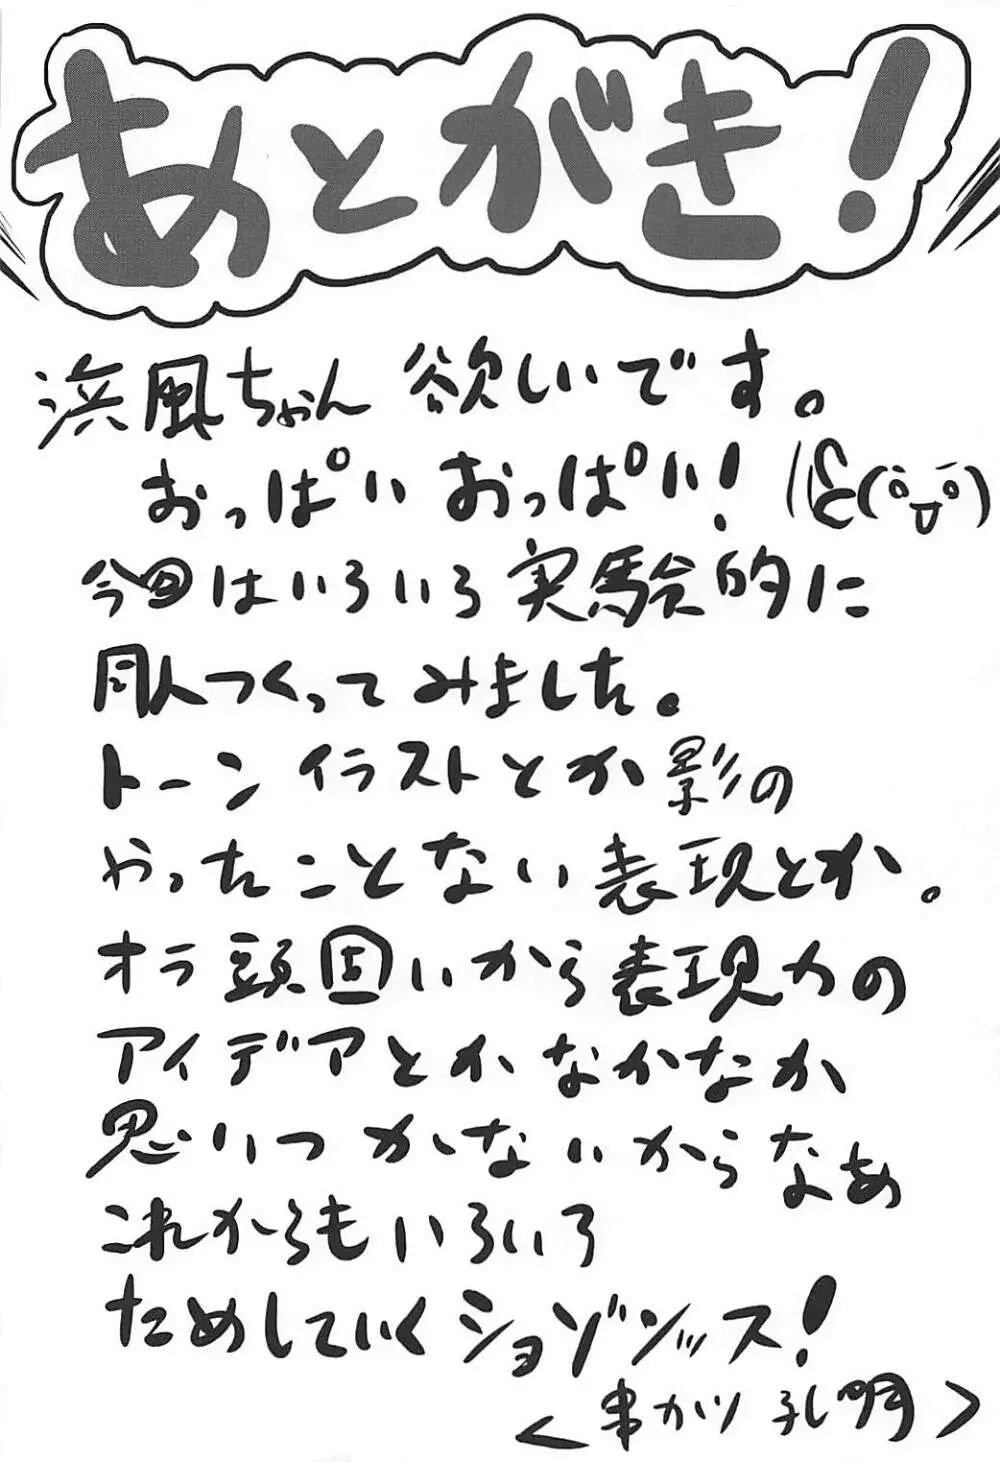 あとがき！
浜風ちゃん 欲しいです。
おっぱい おっぱい！
今回はいろいろ実験的に
本つくってみました。
トーンイラストとか影の
やったことない表現とか。
オラ頭固いから表現力の
アイデアとかなかなか
思いつかないからなあ
これからもいろいろ
ためしていくショゾンッス！
＜串カツ孔明＞